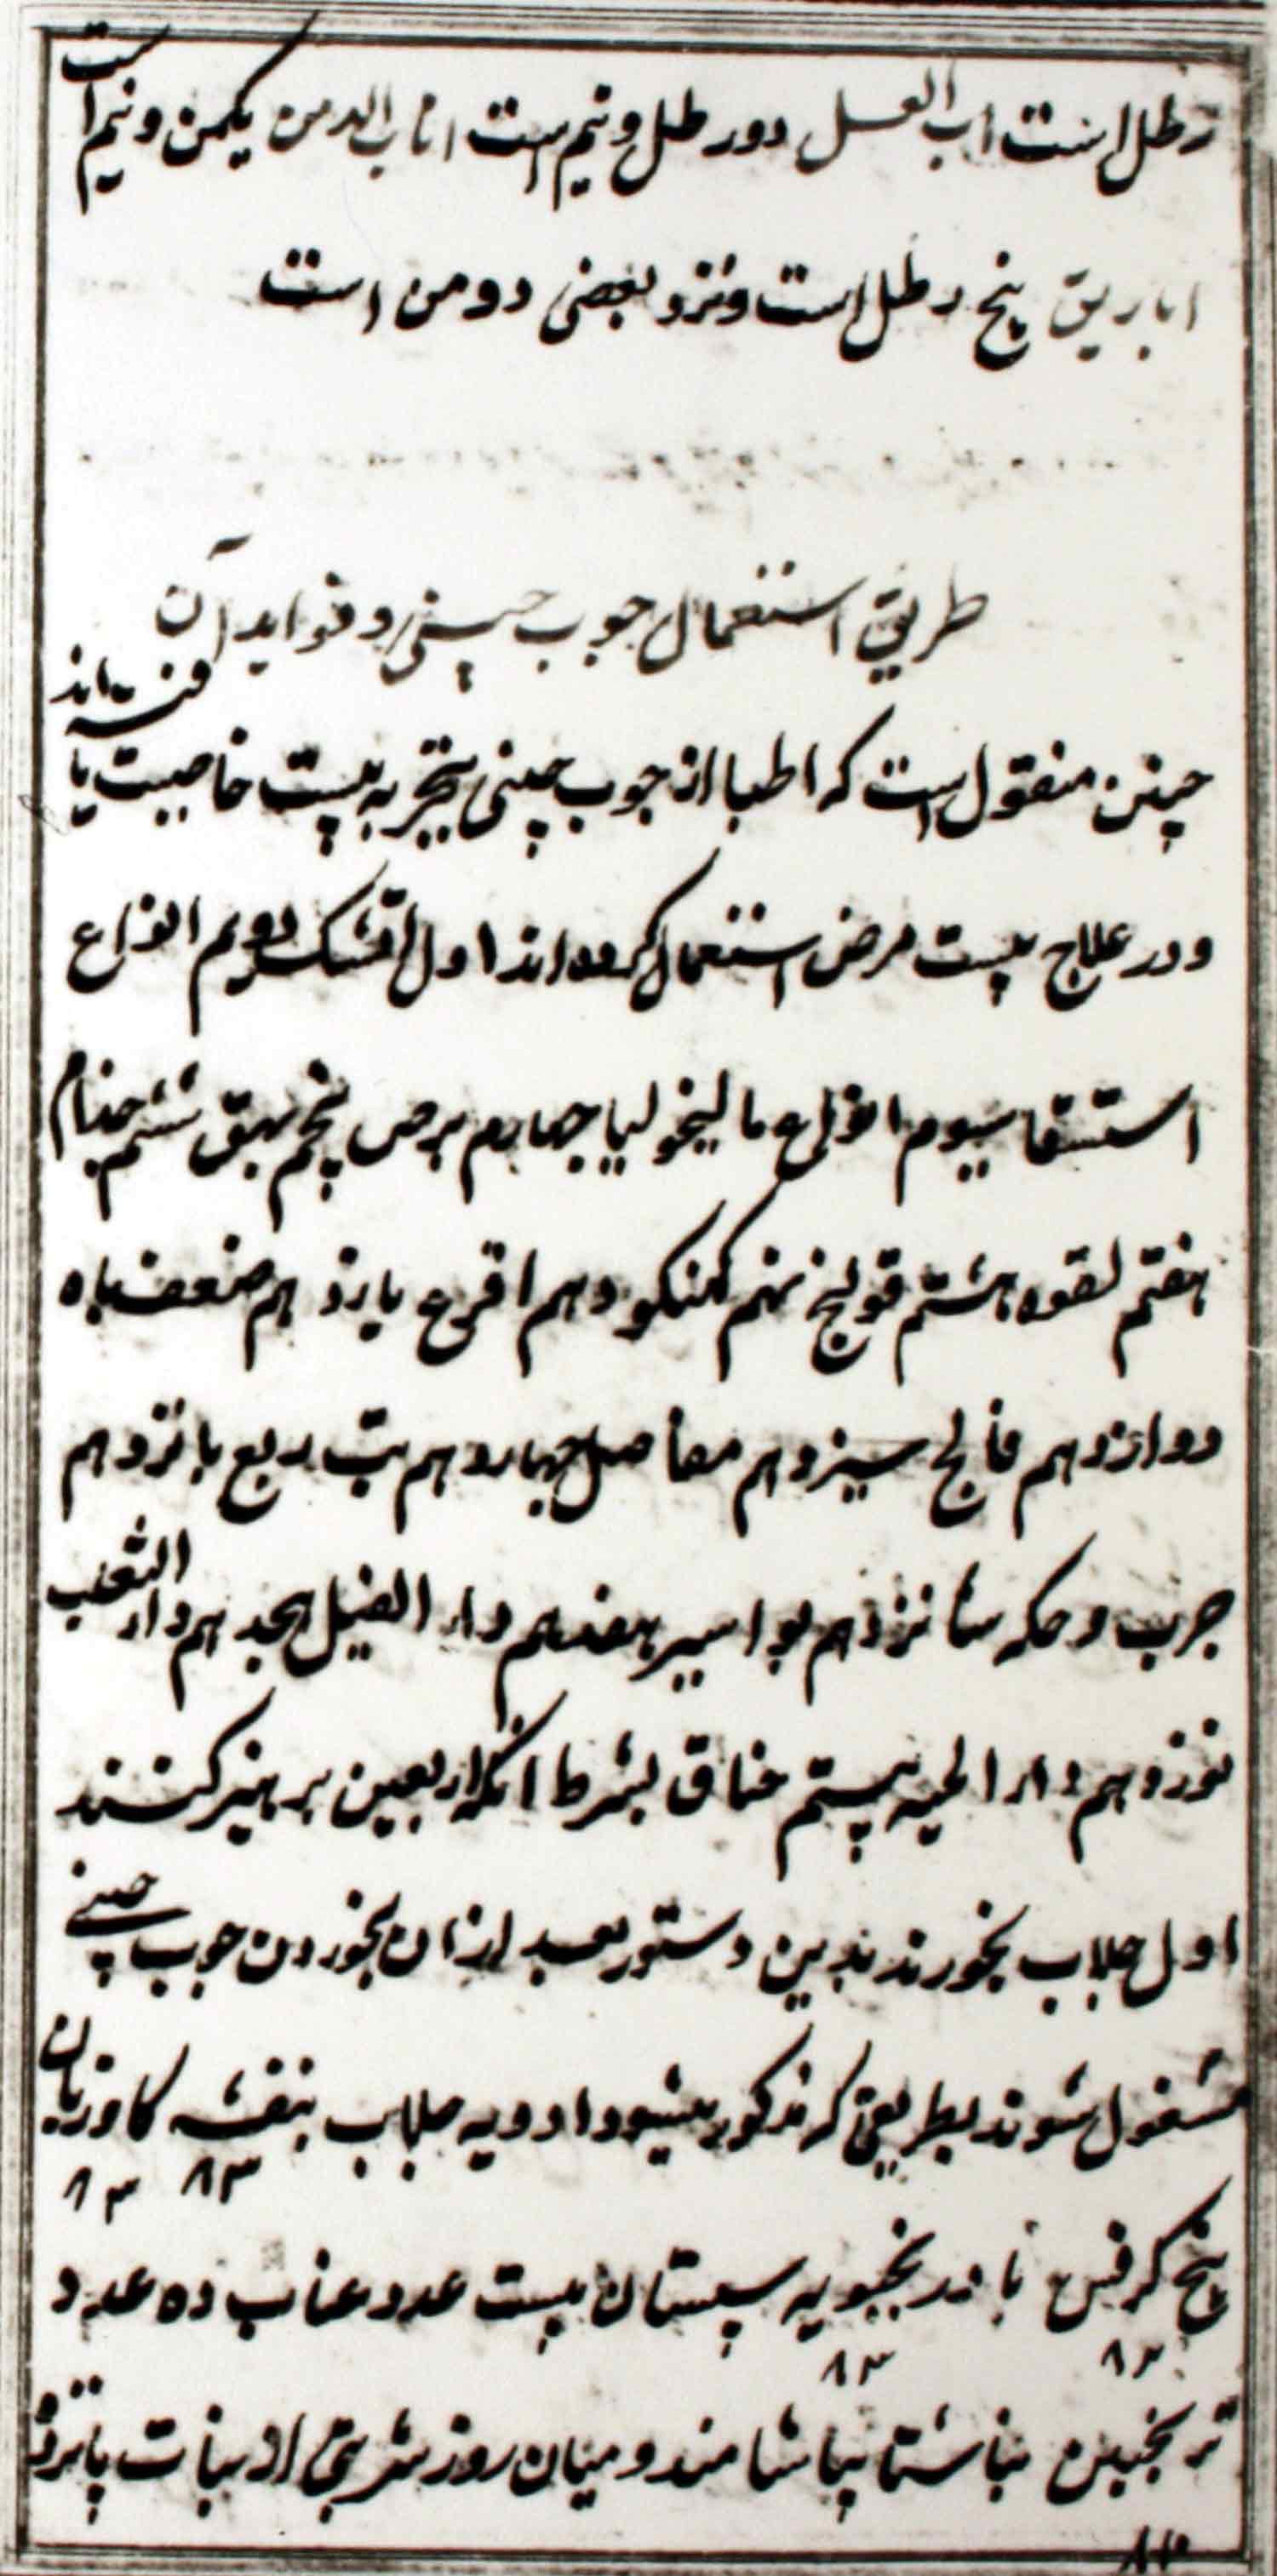 رطل است اب العسل دو رطل و نیم است اناب الدمن یکمن و نیم است
اباریق پنج رطل است و نزد بعضی دو من است
طریق استعمال جوب چینی و فواید آن
چنین منقول است که اطبا از جوب چینی بتجربه بیست خاصیت یافته‌اند
و در علاج بیست مرض استعمال کرده‌اند اول اتشک دویم انواع
استسقا سیوم انواع مالیخولیا چهارم برص پنجم بهق ششم جذام
هفتم لقوه هشتم قولنج نهم کنکو دهم اقرع یازدهم ضعف باه
دوازدهم فالج سیزدهم مفاصل چهاردهم تب ربع پانزدهم
جرب و حکه شانزدهم بواسیر هفدهم داء الفیل هجدهم داء الثعلب
نوزدهم داء الحیه بیستم خناق بشرط انکه اربعین پرهیز کنند
اول جلاب بخورند بدین دستور بعد از ان بخوردن جوب چینی
مشغول شوند بطریقی که مذکور میشود ادویه جلاب بنفشه کاوزبان
۸۳ ۸۳
بیخ کرفس بادرنجبویه سپستان بیست عدد عناب ده عدد
۸۳ ۸۳
ترنجبین بناشتا بیاشامند و میان روز شربتی از نبات